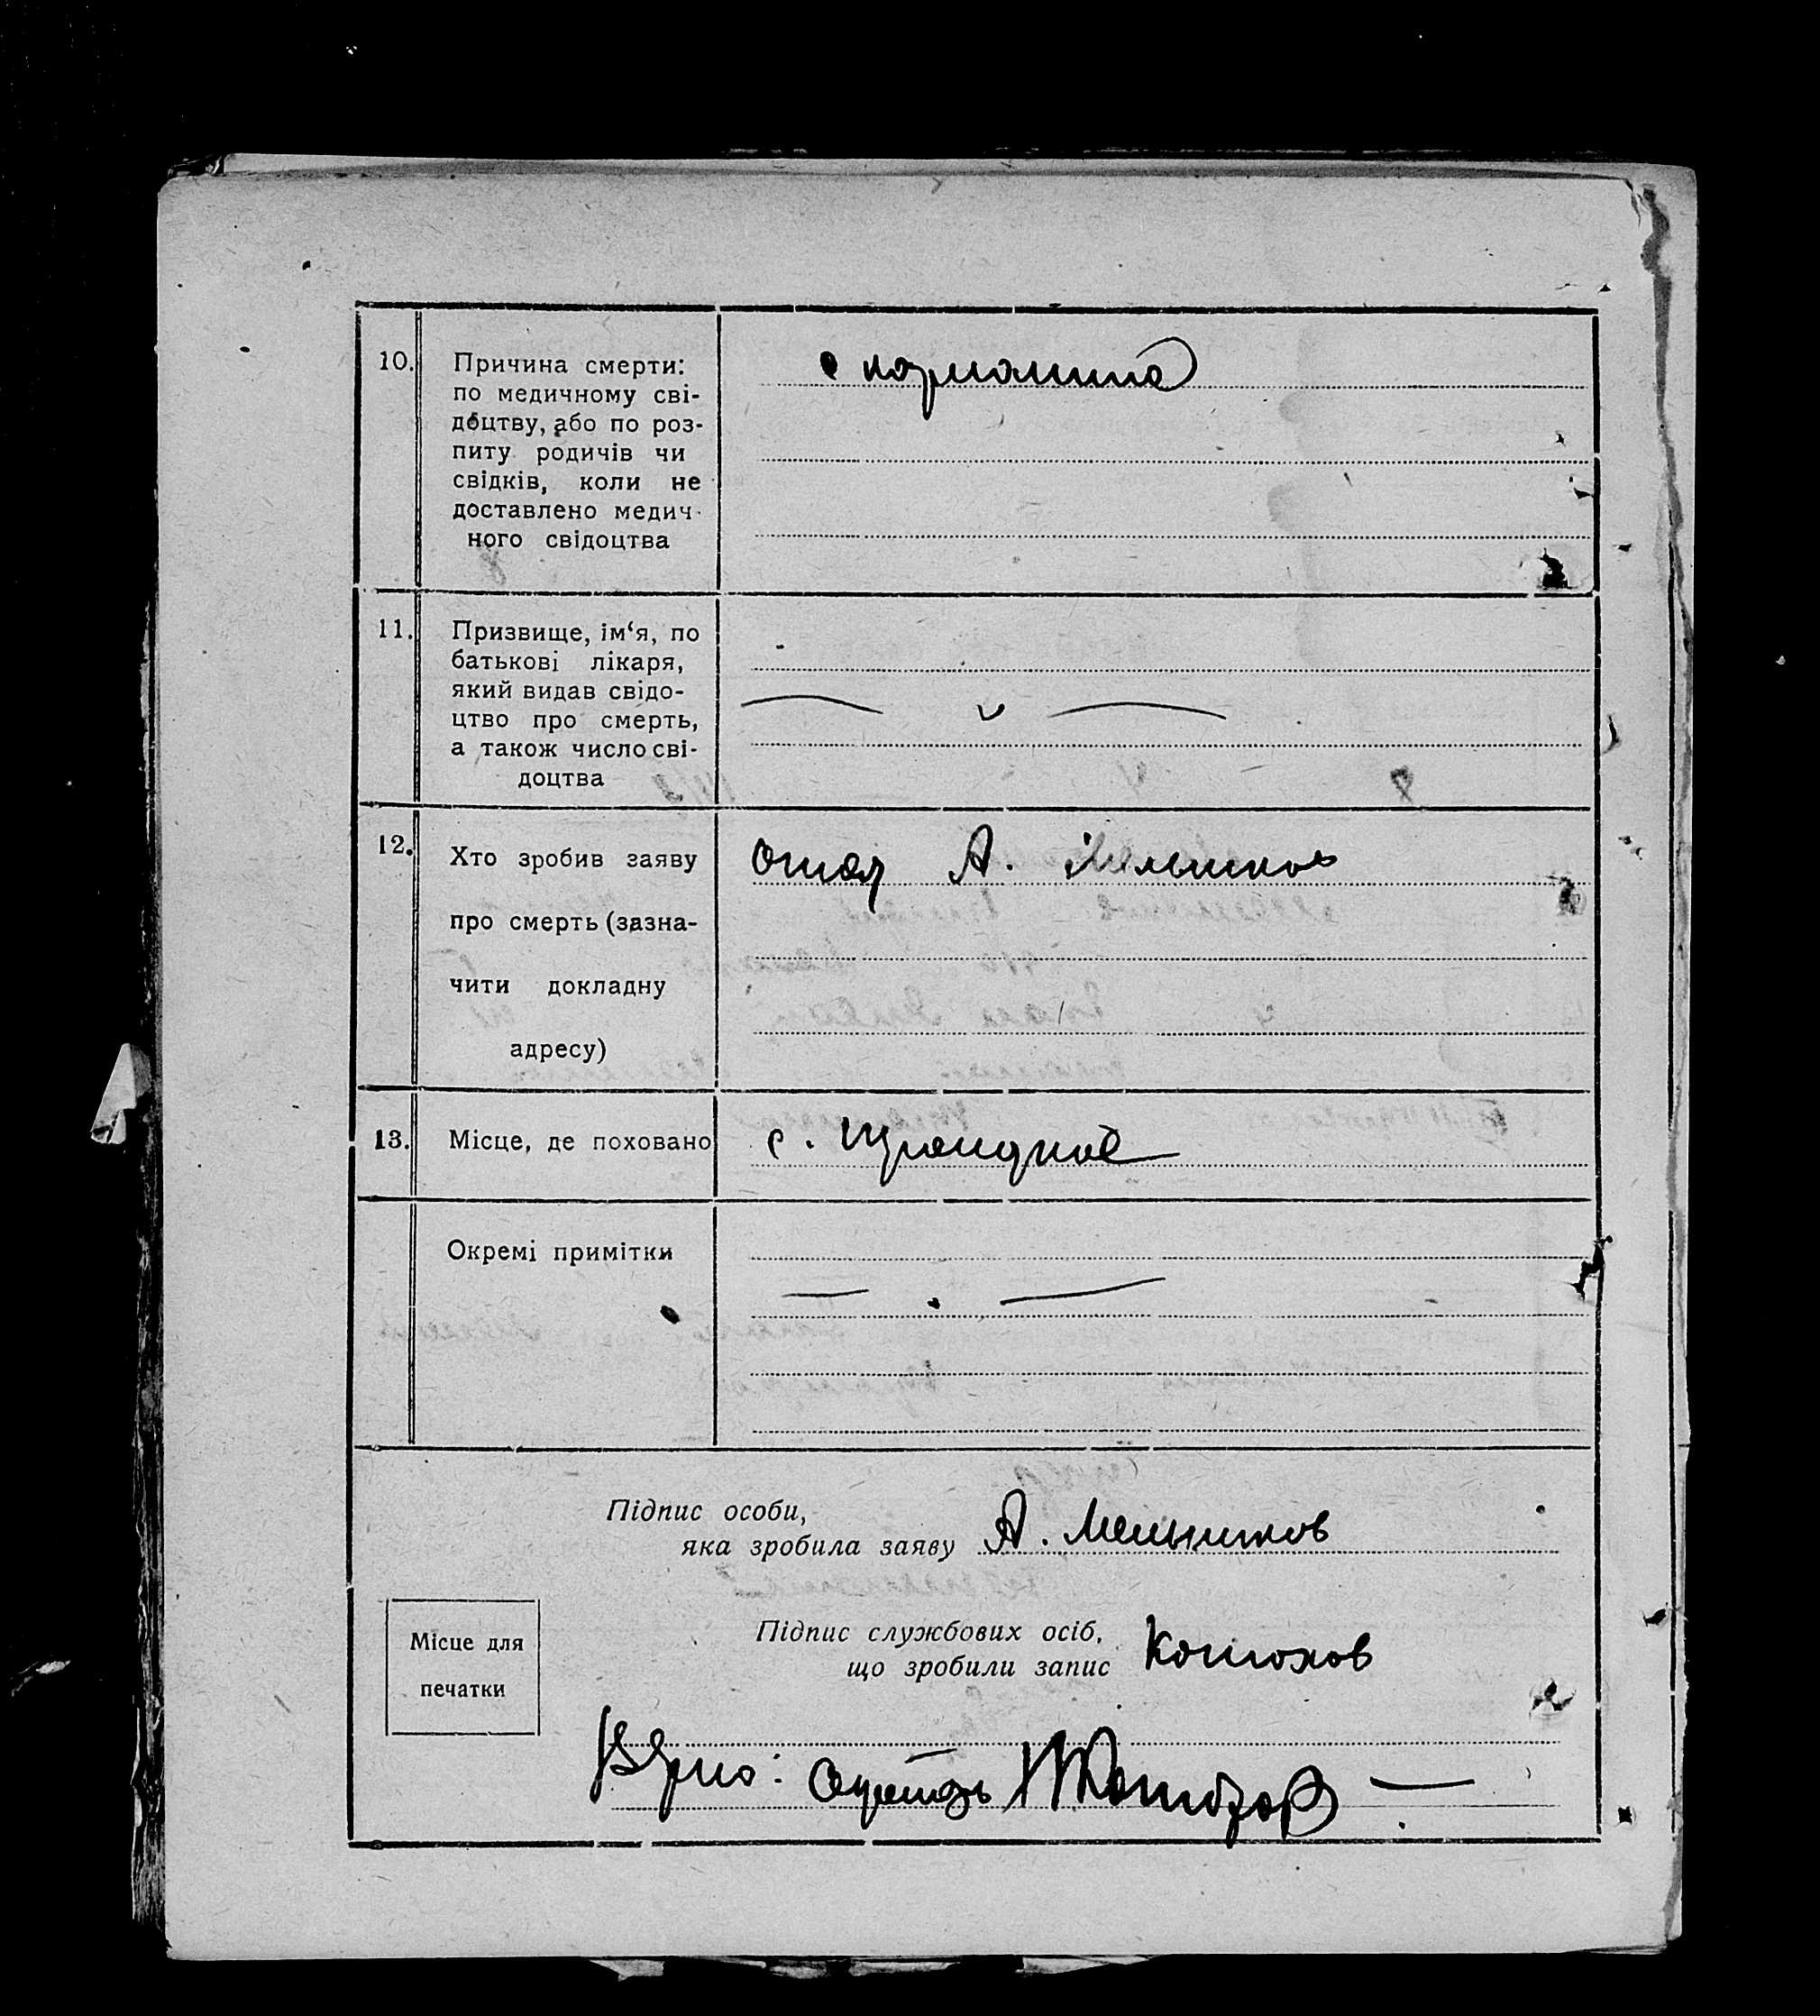 10. Причина смерти:
по медичному сві-
доцтву, або по роз-
питу родичів чи
свідків, коли не
доставлено медич-
ного свідоцтва
скарлатина
11. Призвище, ім‘я, по
батькові лікаря,
який видав свідо-
цтво про смерть,
а також число сві-
доцтва
12. Хто зробив заяву
про смерть (зазна-
чити докладну
адресу)
А. Мельников
13. Місце, де поховано
с.
Окремі примітки
Підпис особи,
яка зробила заяву А. Мельников
Підпис службових осіб,
що зробили запис
Місце для
печатки